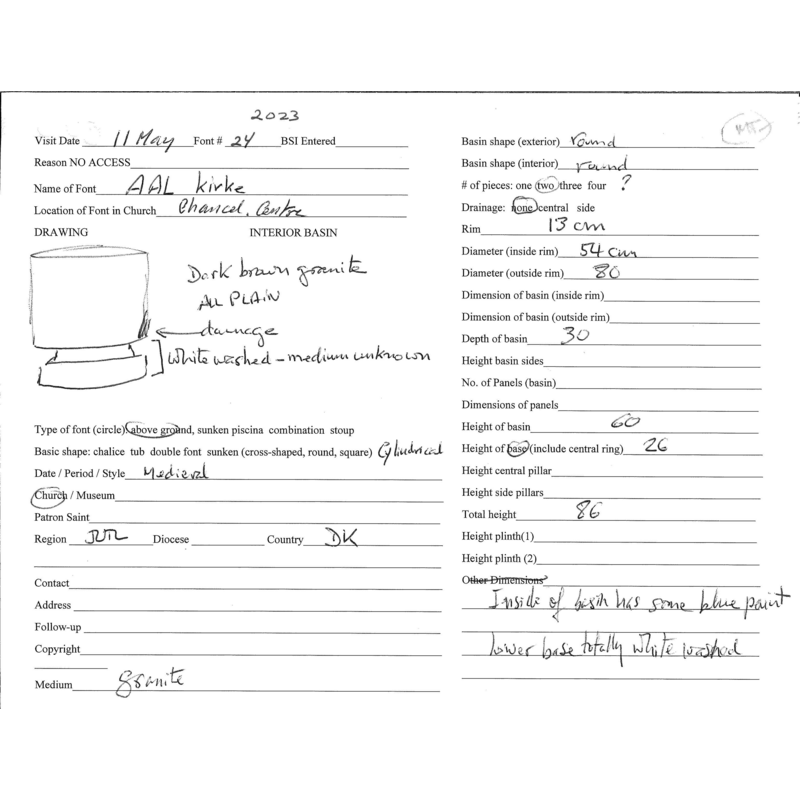 2023
Visit Date 11 May Font # 24 BSI Entered
Reason NO ACCESS
Name of Font AAL kirke
Location of Font in Church Chancel, Centre
DRAWING INTERIOR BASIN
Dark brown granite
ALL PLAIN
damage
White washed - medium unknown
Type of font (circle) above ground, sunken piscina combination stoup
Basic shape: chalice tub double font sunken (cross-shaped, round, square) Cylindrical
Date / Period / Style Medieval
Church / Museum
Patron Saint
Region JUTL Diocese Country DK
Contact
Address
Follow-up
Copyright
Medium granite
Basin shape (exterior) round
Basin shape (interior) round
# of pieces: one two three four ?
Drainage: none central side
Rim 13 cm
Diameter (inside rim) 54 cm
Diameter (outside rim) 80
Dimension of basin (inside rim)
Dimension of basin (outside rim)
Depth of basin 30
Height basin sides
No. of Panels (basin)
Dimensions of panels
Height of basin 60
Height of base (include central ring) 26
Height central pillar
Height side pillars
Total height 86
Height plinth(1)
Height plinth (2)
Other Dimensions
Inside of basin has some blue paint
lower base totally white washed